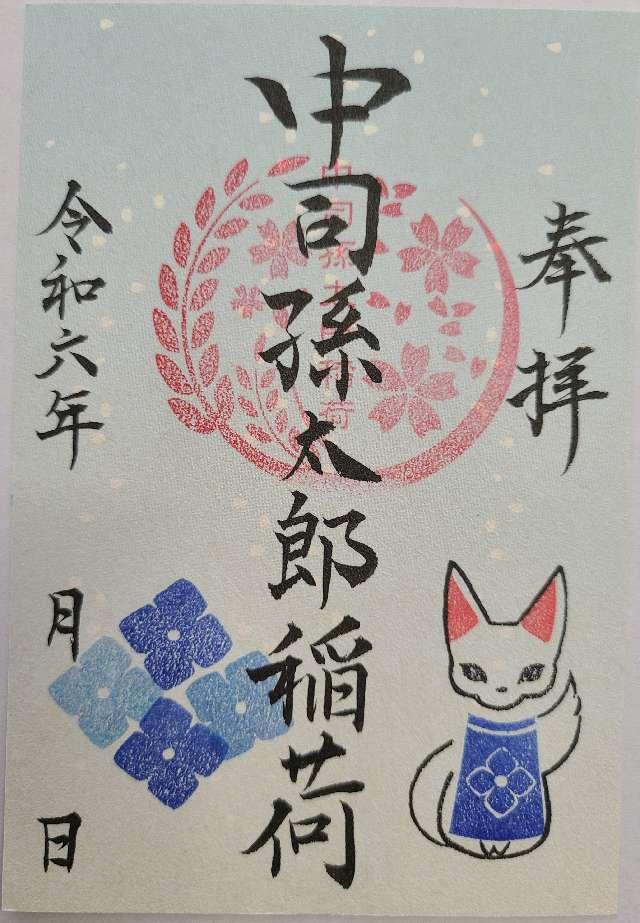 奉拝
中司孫太郎稲荷
中司孫太郎稲荷
令和六年 月 日